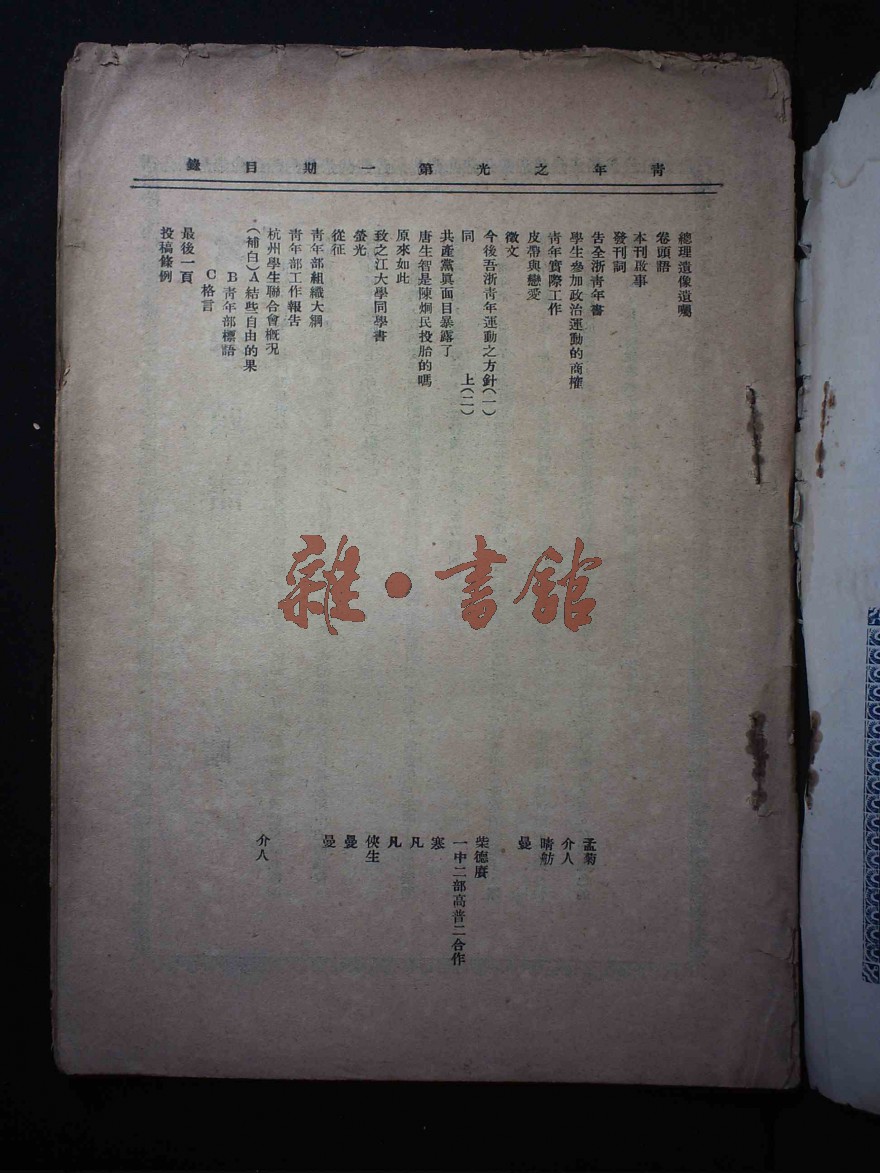 青年之光第一期目錄
總理遺像遺囑
卷頭語
本刊啟事
發刊詞
告全浙青年書 孟菊
學生參加政治運動的商榷 介人
青年實際工作 晴舫
皮帶與戀愛 曼
徵文
今後吾浙青年運動之方針(一) 柴德賡
同上(二) 一中二部高普二合作
共產黨眞面目暴露了 寒
唐生智是陳炯民投胎的嗎 凡
原來如此 凡
致之江大學同學書 俠生
螢光 曼
從征 曼
靑年部組織大綱
靑年部工作報告
杭州學生聯合會概況 介人
(補白)A結些自由的果
B靑年部標語
C格言
最後一頁
投稿條例
雜·書館